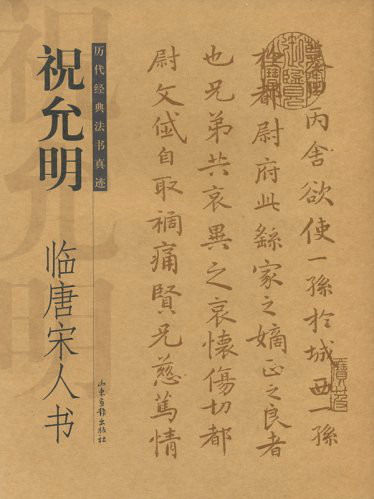 历代经典法书真迹
祝允明
临唐宋人书
山东画报出版社
祝允明
丙舍欲使一孫於城西一孫
在都尉府此繇家之嫡正之良者
也兄弟共哀異之哀懷傷切都
尉文岱自取禍痛賢兄慈篤情